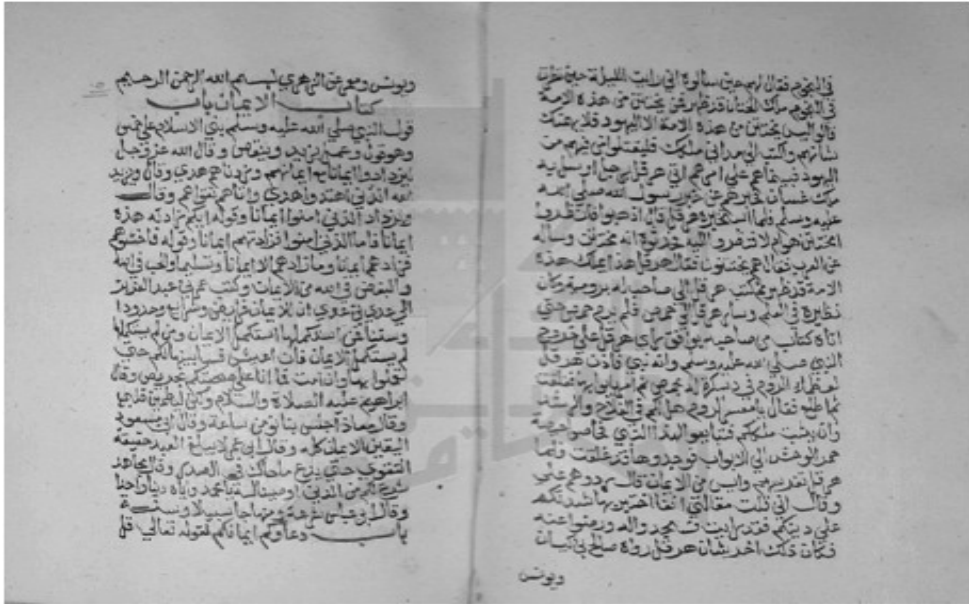 في النجوم فقال لهم حين سالوه اني رايت الليلة حين نظرت
في النجوم ملك الختان قد ظهر فمن يختتن من هذه الامة
قالوا ليس يختتن من هذه الامة الا اليهود فلا يهمنك
شانهم واكتب الي مداين ملكك فليقتلوا من فيهم من
اليهود فبينما هم علي امرهم اتي هرقل برجل ارسل به
ملك غسان يخبرهم عن خبر رسول الله صلي الله
عليه وسلم فلما استخبره هرقل قال اذهبوا فانظروا
امختتن هو ام لا فنظروا اليه فحدثوه انه مختتن وساله
عن العرب فقال هم يختتنون فقال هرقل هذا ملك هذه
الامة قد ظهر ثم كتب هرقل الي صاحب له برومية وكان
نظيره في العلم وسار هرقل الي حمص فلم يرم حمص حتي
اتاه كتاب من صاحبه يوافق راي هرقل علي خروج
النبي صلي الله عليه وسلم وانه نبي فاذن هرقل
لعظماء الروم في دسكرة له بحمص ثم امر بابوابها فغلقت
ثم اطلع فقال يا معشر الروم هل لكم في الفلاح والرشد
وان يثبت ملككم فتبايعوا لهذا النبي فحاصوا حيصة
حمر الوحش الي الابواب فوجدوها قد غلقت فلما
هرقل نفرتهم وايس من الايمان قال ردوهم علي
وقال اني قلت مقالتي انفا اختبر بها شدتكم
علي دينكم فقد رايت فسجدوا له ورضوا عنه
فكان ذلك اخر شان هرقل رواه صالح بن كيسان
ويونس
ويونس ومعمر عن الزهري بسم الله الرحمن الرحيم
كتاب الايمان باب
قول النبي صلي الله عليه وسلم بني الاسلام علي خمس
وهو قول وعمل يزيد وينقص وقال الله عز وجل
ليزدادوا ايمانا مع ايمانهم وزدناهم هدي وقال ويزيد
الله الذين اهتدوا هدي واتاهم تقواهم وقال
ويزداد الذين امنوا ايمانا وقوله ايكم زادته هذه
ايمانا فاما الذين امنوا فزادتهم ايمانا وقوله فاخشوهم
فزادهم ايمانا وما زادهم الا ايمانا وتسليما والحب في الله
والبغض في الله من الايمان وكتب عمر بن عبد العزيز
الي عدي بن عدي ان للايمان فرايض وشرايع وحدودا
وسننا فمن استكملها استكمل الايمان ومن لم يستكملها
لم يستكمل الايمان فان اعش فسابينها لكم حتي
تعملوا بها وان امت فما انا علي صحبتكم بحريص وقال
ابراهيم عليه الصلاة والسلام ولكن ليطمين قلبي
وقال معاذ اجلس بنا نومن ساعة وقال ابن مسعود
اليقين الايمان كله وقال ابن عمر لا يبلغ العبد حقيقة
التقوي حتي يدع ما حاك في الصدر وقال مجاهد
شرع لكم من الدين اوصيناك يا محمد واياه دينا واحدا
وقال ابن عباس شرعة ومنهاجا سبيلا وسنة
باب دعاوكم ايمانكم لقوله تعالي قل